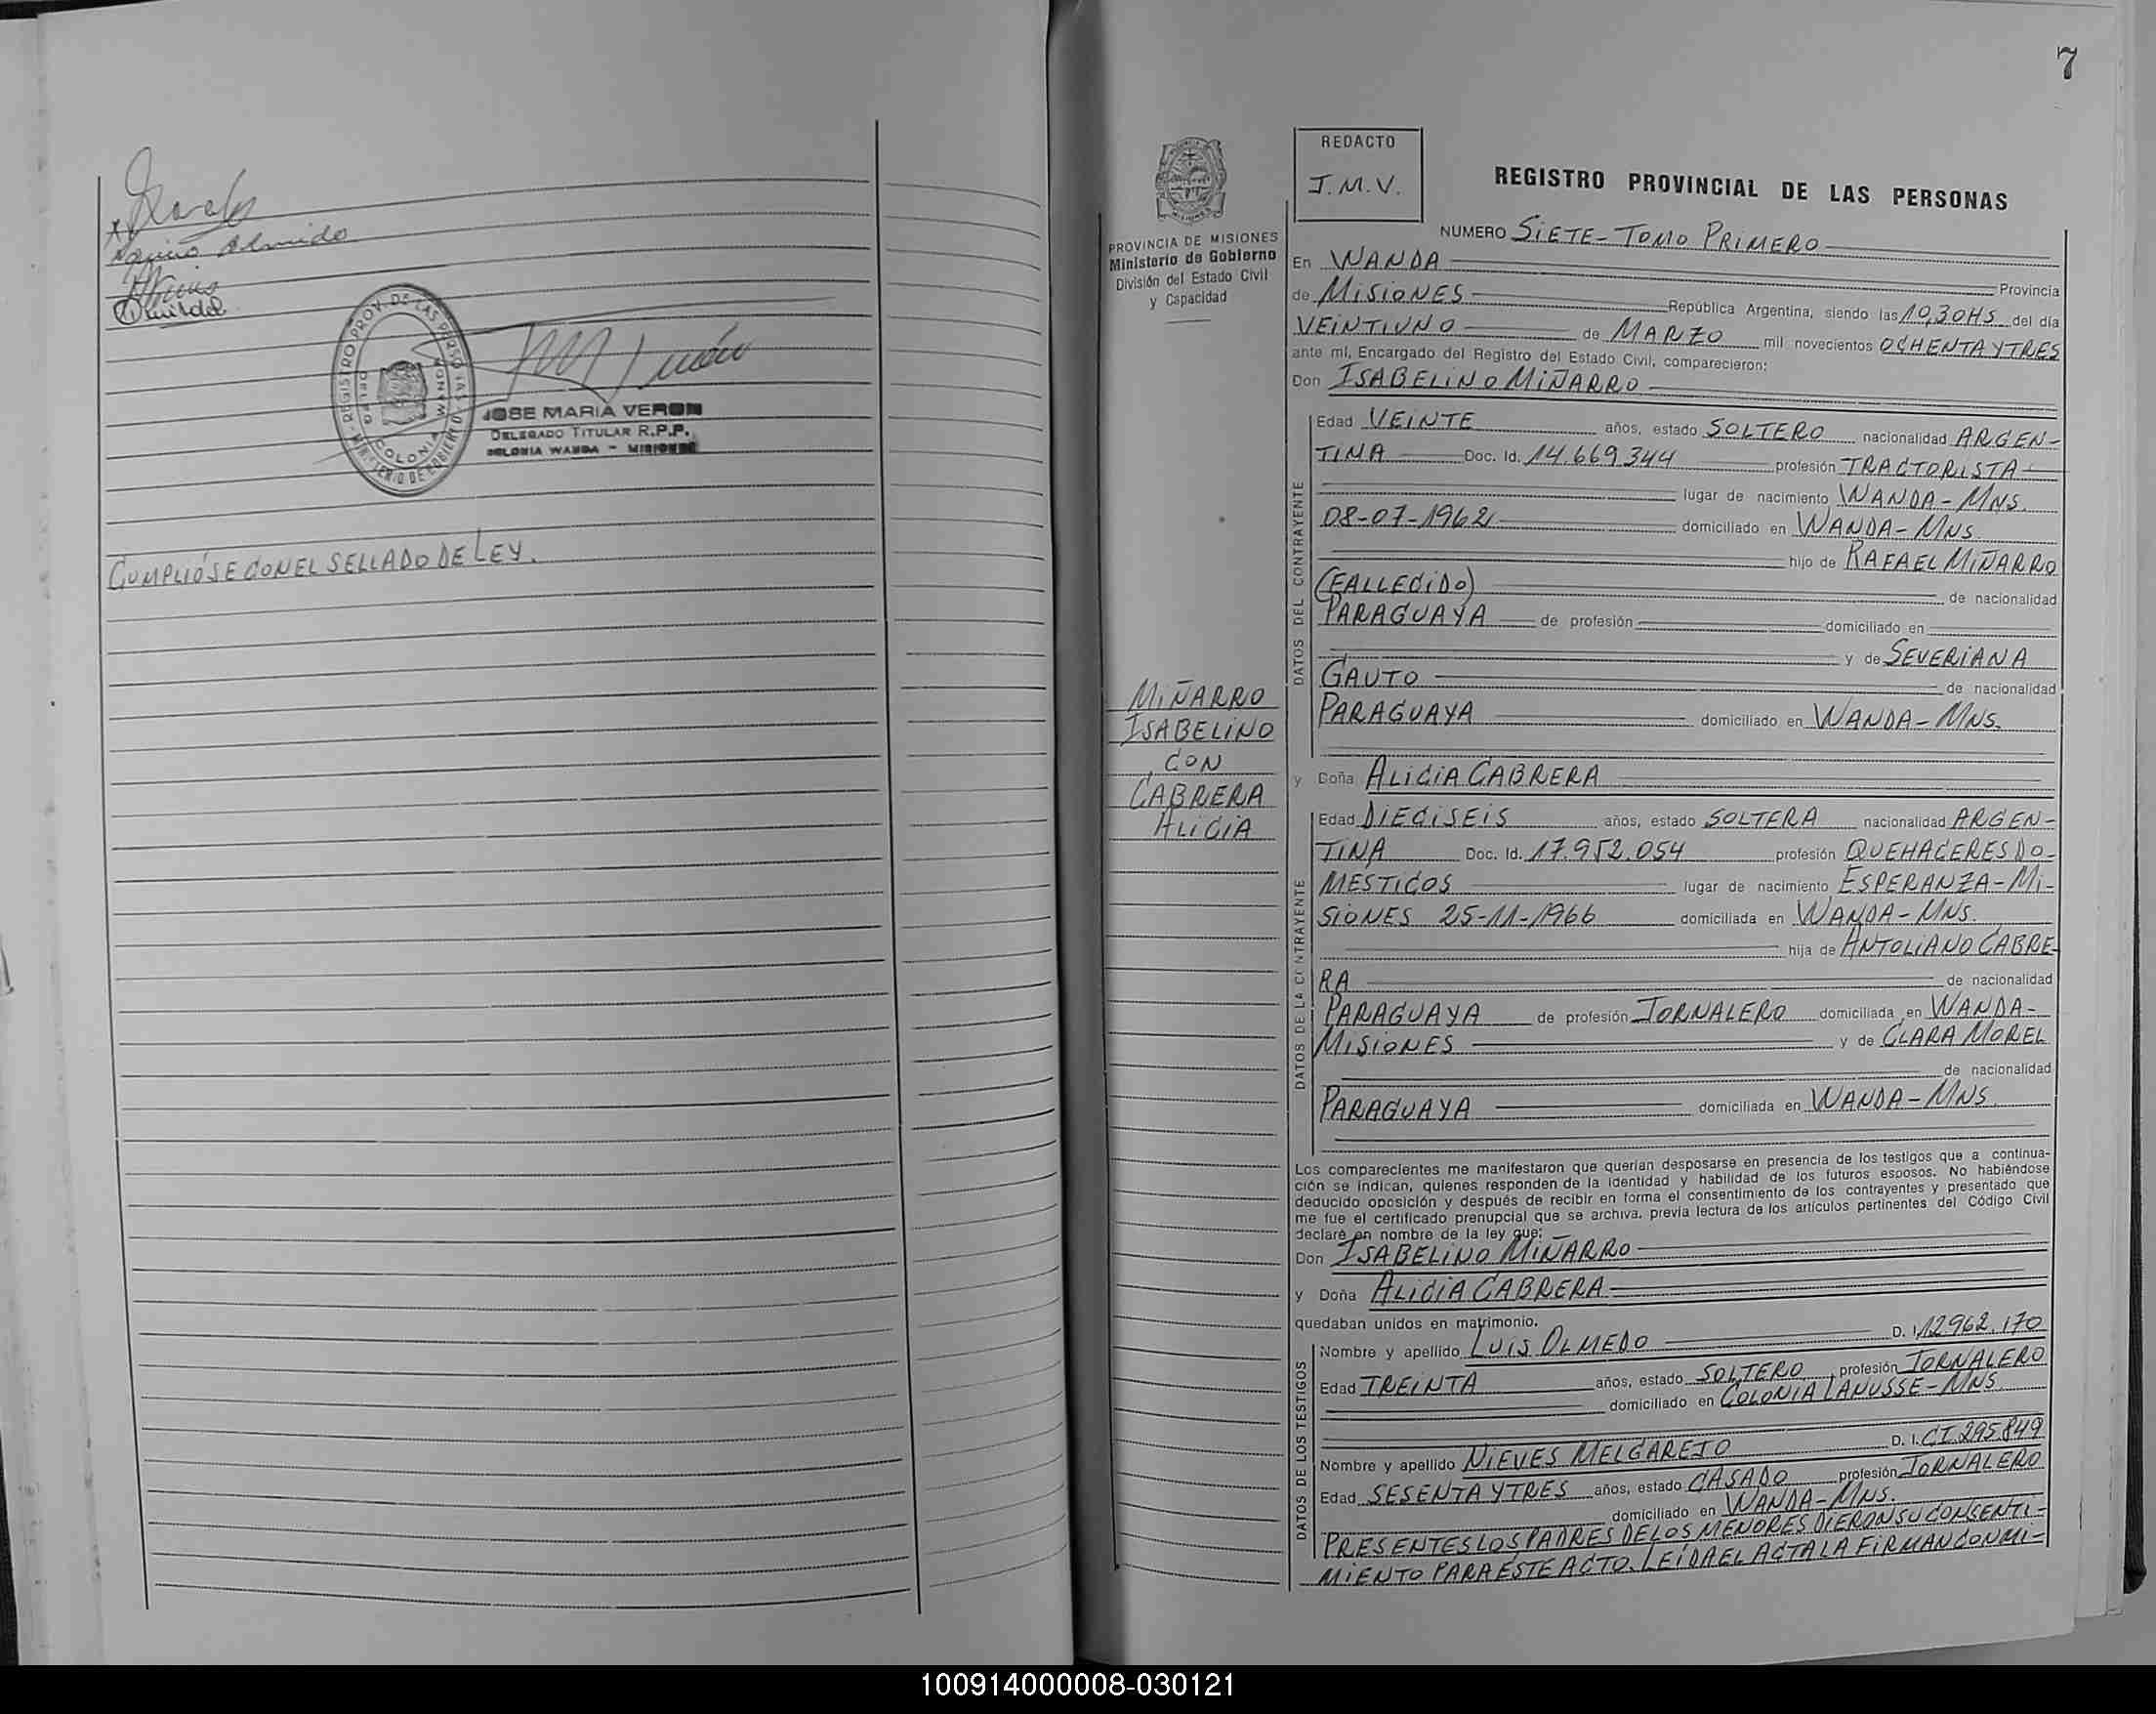 CUMPLIÓSE CON EL SELLADO DE LEY.
JOSE MARIA VERON
DELEGADO TITULAR R.P.P.
COLONIA WANDA - MISIONES
7
REDACTO
J.M.V.
PROVINCIA DE MISIONES
Ministerio de Gobierno
División del Estado Civil
y Capacidad
MIÑARRO
ISABELINO
CON
CABRERA
ALICIA
REGISTRO PROVINCIAL DE LAS PERSONAS
NUMERO SIETE - TOMO PRIMERO
En WANDA Provincia
de MISIONES República Argentina, siendo las 10,30 HS del día
VEINTIUNO de MARZO mil novecientos OCHENTA Y TRES
ante mí, Encargado del Registro del Estado Civil, comparecieron:
Don ISABELINO MIÑARRO
DATOS DEL CONTRAYENTE
Edad VEINTE años, estado SOLTERO nacionalidad ARGEN-
TINA Doc. Id. 14.669.344 profesión TRACTORISTA
lugar de nacimiento WANDA - MNS.
08-07-1962 domiciliado en WANDA - MNS.
hijo de RAFAEL MIÑARRO
(FALLECIDO) de nacionalidad
PARAGUAYA de profesión domiciliado en
y de SEVERIANA
GAUTO de nacionalidad
PARAGUAYA domiciliado en WANDA - MNS.
y Doña ALICIA CABRERA
DATOS DE LA CONTRAYENTE
Edad DIECISEIS años, estado SOLTERA nacionalidad ARGEN-
TINA Doc. Id. 17.952.054 profesión QUEHACERES DO-
MESTICOS lugar de nacimiento ESPERANZA - MI-
SIONES 25-11-1966 domiciliada en WANDA - MNS.
hija de ANTOLIANO CABRE-
RA de nacionalidad
PARAGUAYA de profesión JORNALERO domiciliada en WANDA-
MISIONES y de CLARA MOREL
de nacionalidad
PARAGUAYA domiciliada en WANDA - MNS
Los comparecientes me manifestaron que querían desposarse en presencia de los testigos que a continua-
ción se indican, quienes responden de la identidad y habilidad de los futuros esposos. No habiéndose
deducido oposición y después de recibir en forma el consentimiento de los contrayentes y presentado que
me fue el certificado prenupcial que se archiva, previa lectura de los artículos pertinentes del Código Civil
declaré en nombre de la ley que:
Don ISABELINO MIÑARRO
y Doña ALICIA CABRERA
quedaban unidos en matrimonio.
DATOS DE LOS TESTIGOS
Nombre y apellido LUIS OLMEDO D. I. 12.962.170
Edad TREINTA años, estado SOLTERO profesión JORNALERO
domiciliado en COLONIA LANUSSE - MNS
Nombre y apellido NIEVES MELGAREJO D. I. CI 295849
Edad SESENTA Y TRES años, estado CASADO profesión JORNALERO
domiciliado en WANDA - MNS.
PRESENTES LOS PADRES DE LOS MENORES DIERON SU CONSENTI-
MIENTO PARA ESTE ACTO. LEÍDA EL ACTA LA FIRMAN CON MI-
100914000008-030121